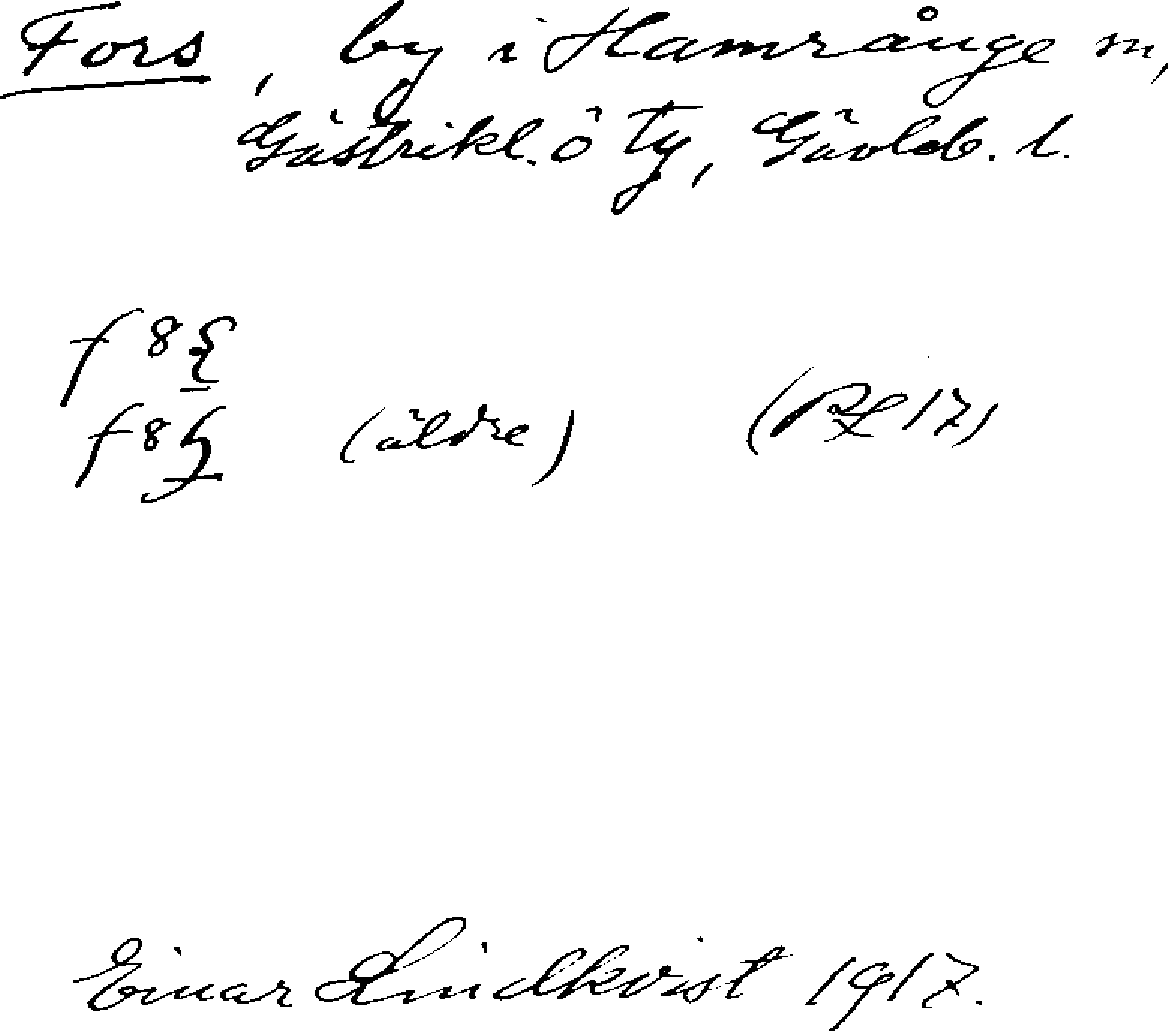 Fors, by i Hamrånge sn,
Gästrikl. ö tg, Gävleb. l.
(äldre)
Einar Lindkvist 1917.